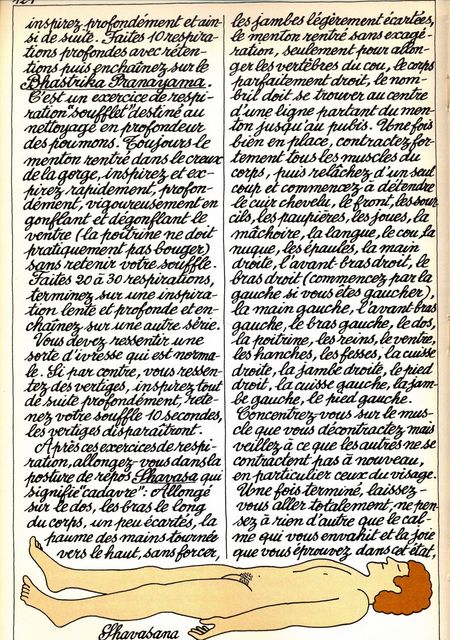 inspirez profondément et ain-
si de suite. Faites 10 respira-
tions profondes avec réten-
tions puis enchaînez sur le
Bhastrika Pranayama.
C'est un exercice de respi-
ration "soufflet" destiné au
nettoyage en profondeur
des poumons. Toujours le
menton rentré dans le creux
de la gorge, inspirez et ex-
pirez rapidement, profon-
dément, vigoureusement en
gonflant et dégonflant le
ventre (la poitrine ne doit
pratiquement pas bouger)
sans retenir votre souffle.
Faites 20 à 30 respirations,
terminez sur une inspira-
tion lente et profonde et en-
chaînez sur une autre série.
Vous devez ressentir une
sorte d'ivresse qui est norma-
le. Si par contre, vous ressen-
tez des vertiges, inspirez tout
de suite profondément, rete-
nez votre souffle 10 secondes,
les vertiges disparaîtront.
Après ces exercices de respi-
ration, allongez-vous dans la
posture de repos Shavasa qui
signifie "cadavre": Allongé
sur le dos, les bras le long
du corps, un peu écartés, la
paume des mains tournée
vers le haut, sans forcer,
les jambes légèrement écartées,
le menton rentré sans exagé-
ration, seulement pour allon-
ger les vertèbres du cou, le corps
parfaitement droit, le nom-
bril doit se trouver au centre
d'une ligne partant du men-
ton jusqu'au pubis. Une fois
bien en place, contractez for-
tement tous les muscles du
corps, puis relâchez d'un seul
coup et commencez à détendre
le cuir chevelu, le front, les sour-
cils, les paupières, les joues, la
mâchoire, la langue, le cou, la
nuque, les épaules, la main
droite, l'avant bras droit, le
bras droit (commencez par la
gauche si vous êtes gaucher),
la main gauche, l'avant bras
gauche, le bras gauche, le dos,
la poitrine, les reins, le ventre,
les hanches, les fesses, la cuisse
droite, la jambe droite, le pied
droit, la cuisse gauche, la jam-
be gauche, le pied gauche.
Concentrez-vous sur le mus-
cle que vous décontractez mais
veillez à ce que les autres ne se
contractent pas à nouveau,
en particulier ceux du visage.
Une fois terminé, laissez-
vous aller totalement, ne pen-
sez à rien d'autre que le cal-
me qui vous envahit et la joie
que vous éprouvez dans cet état.
Shavasana